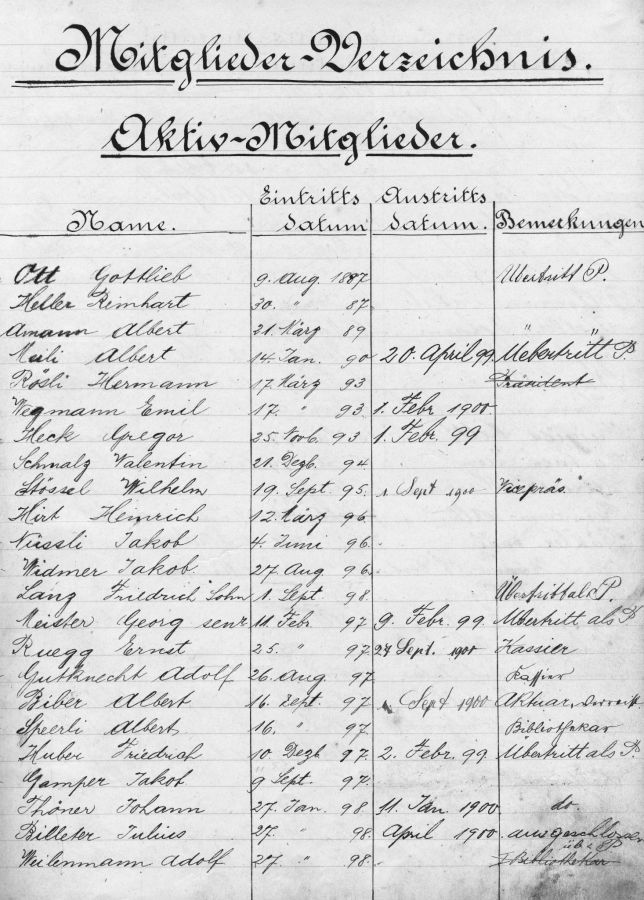 Mitglieder-Verzeichnis.
Aktiv-Mitglieder.
Name. Eintritts datum Austritts datum. Bemerkungen
Ott Gottlieb 9. Aug. 1887 Übertritt P.
Heller Reinhart 30. " 87
Amann Albert 21. März 89
Meili Albert 14. Jan. 90 20. April 99. Uebertritt P.
Rösli Hermann 17. März 93 Präsident
Wegmann Emil 17. " 93 1. Febr. 1900.
Heck Gregor 25. Novb. 93 1. Febr. 99
Schmalz Valentin 21. Dezb. 94
Stössel Wilhelm 19. Sept. 95. 1 Sept 1900 Vicepräs
Hirt Heinrich 12. März 96
Nüssli Jakob 4. Juni 96.
Widmer Jakob 27 Aug 96.
Lanz Friedrich Sohn 1. Sept 98. Übertritt als P.
Meister Georg senr 11. Febr. 97 9. Febr. 99. Übertritt als P
Ruegg Ernst 25. " 97 24 Sept. 1900 Kassier
Gutknecht Adolf 26 Aug. 97. Kassier
Biber Albert 16. Sept. 97. Sept 1900 Aktuar,
Sperli Albert 16. " 97. Bibliothekar
Huber Friedrich 10. Dezb 97. 2. Febr. 99. Übertritt als P.
Gamper Jakob 9 Sept. 97.
Thöner Johann 27. Jan. 98. 11. Jan. 1900 do.
Billeter Julius 27. " 98. April 1900 ausgeschlossen
üb. P
Weilenmann Adolf 27 " 98. Bibliothekar